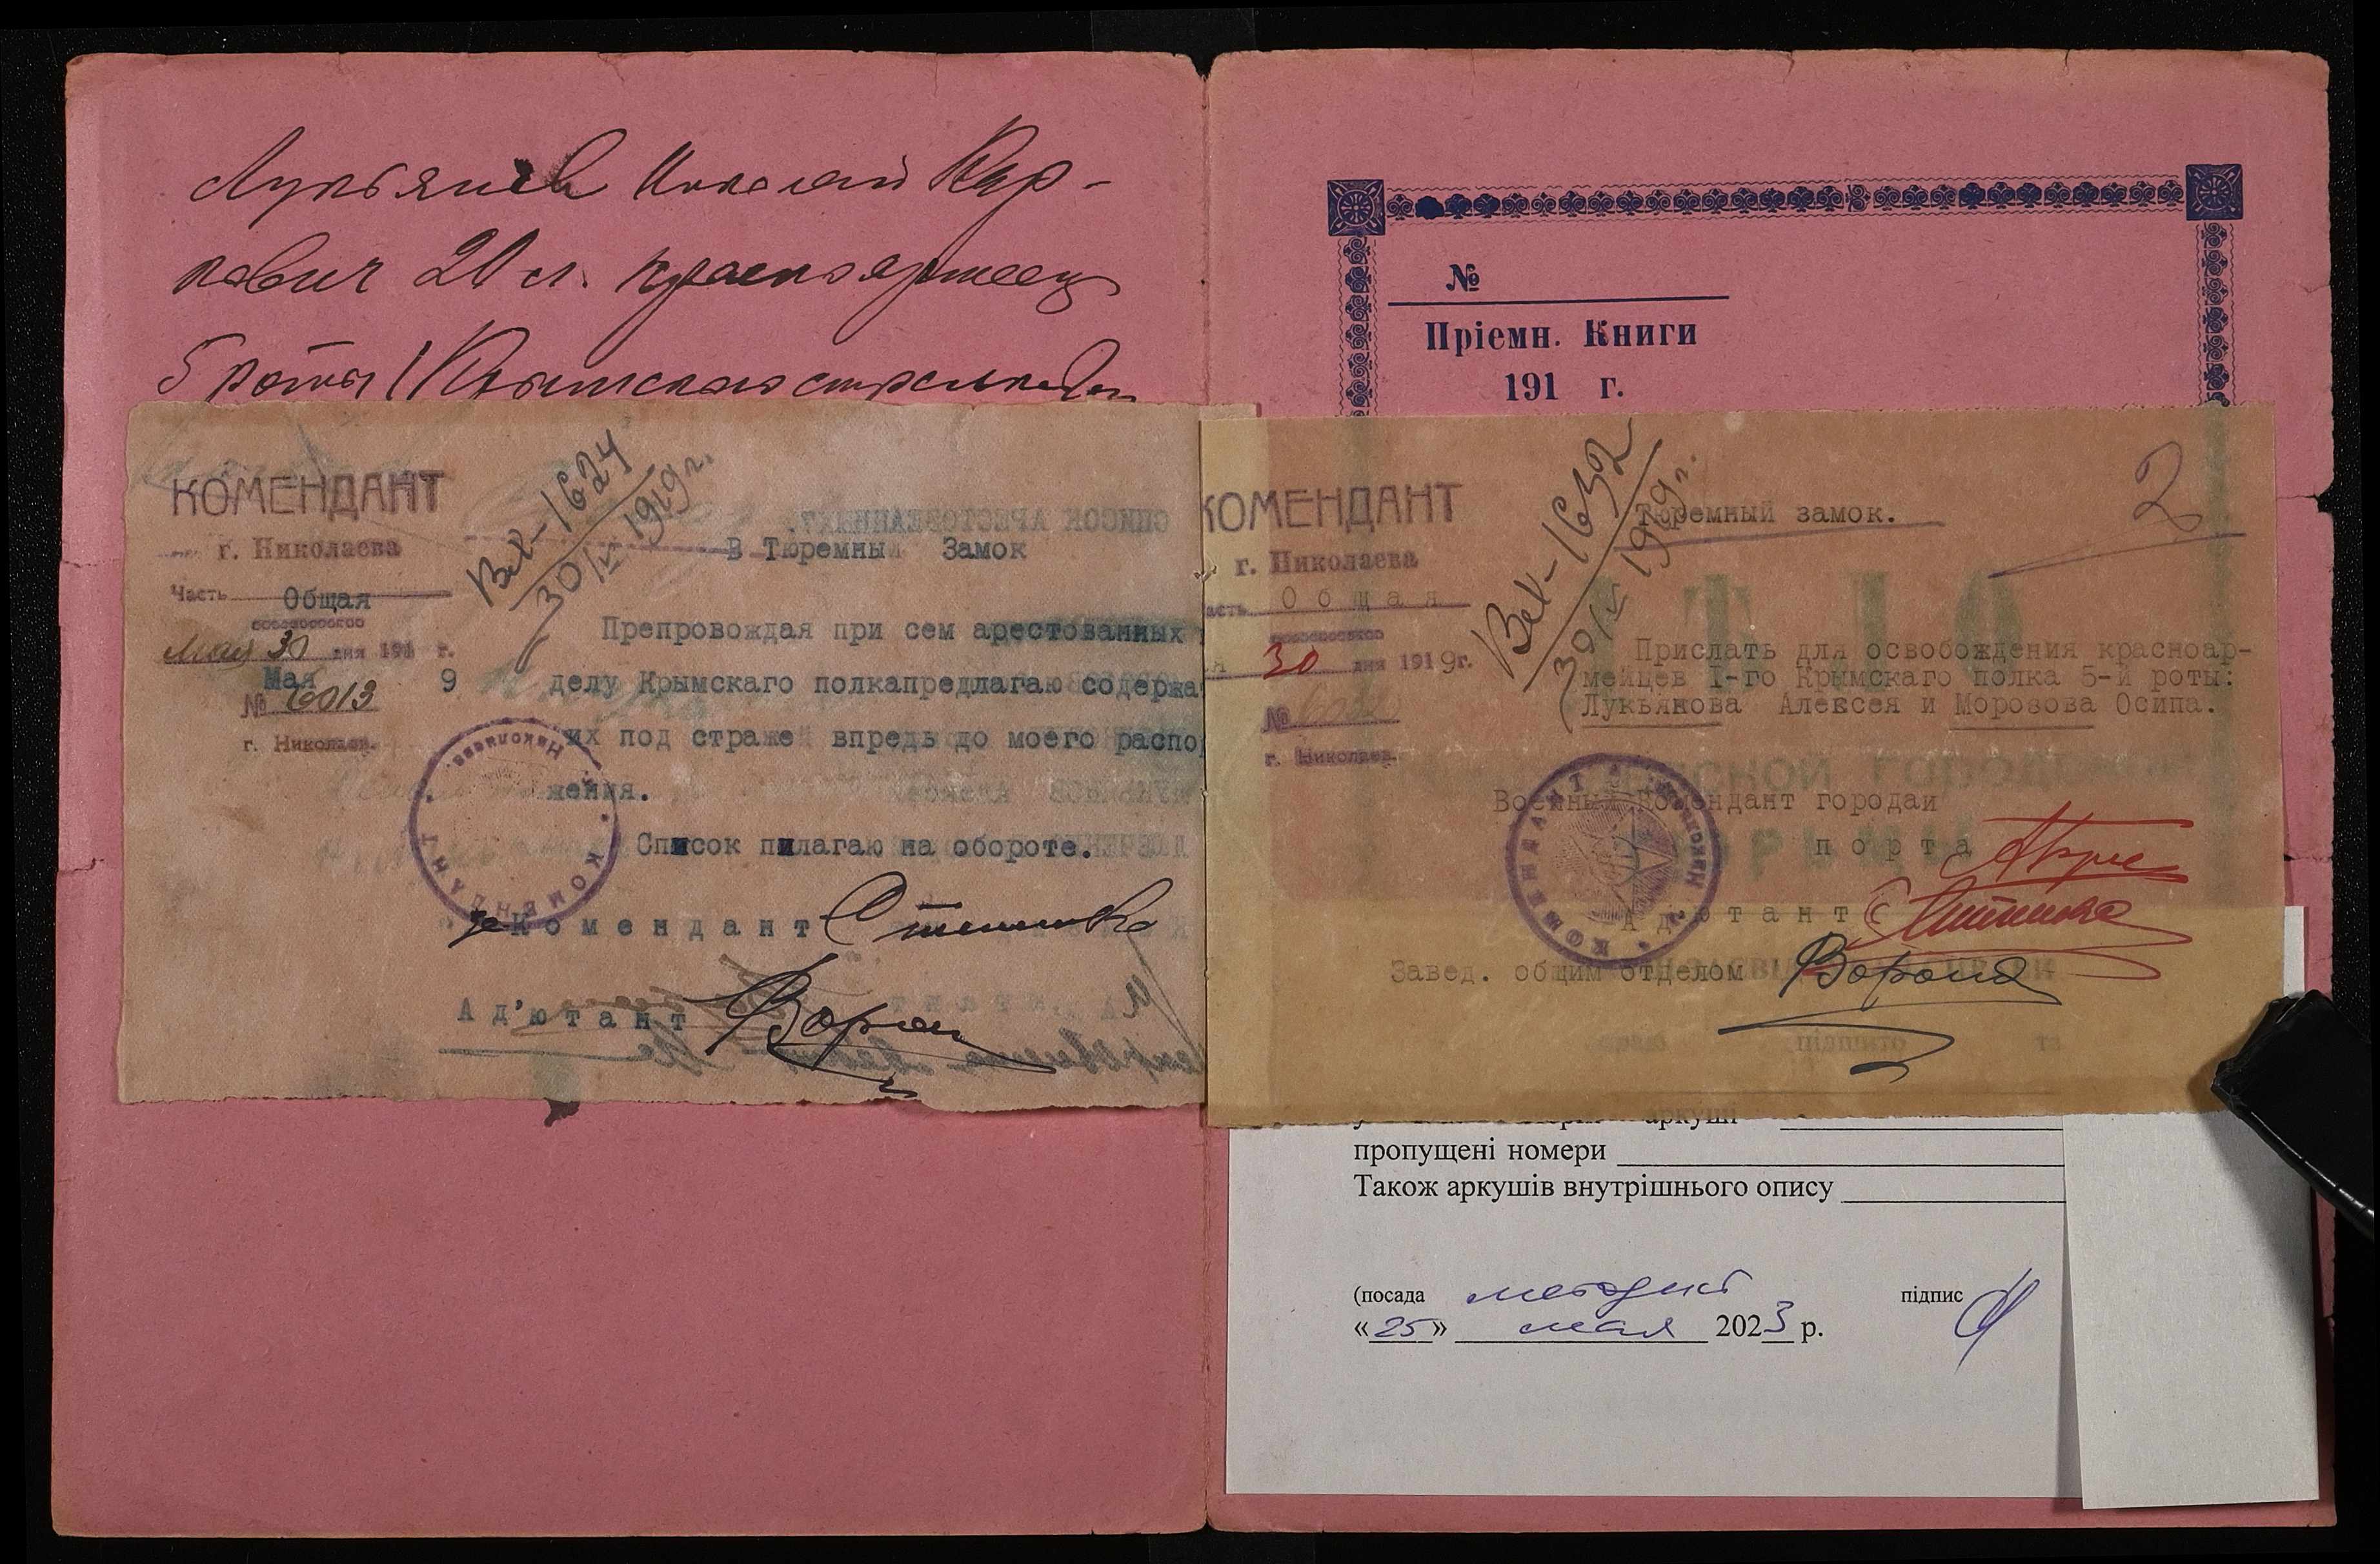 Лукьянов Николай Кар-
пович 20 л. красноармеец
5 роты 1 Крымского
КОМЕНДАНТ
г. Николаева
Часть Общая
Мая 30 дня 191 г.
Мая 9
№ 6013
г. Николаев.
Вх-1624
30/V 1919г.
В Тюремный Замок
Препровождая при сем арестованных
делу Крымскаго полкапредлагаю содержа
их под стражей впредь до моего распо
жения.
Список пилагаю на обороте.
Комендант
Ад'ютант
Николаева
КОМЕНДАНТ
№
Пріемн. Книги
191 г.
КОМЕНДАНТ
г. Николаева
асть Общая
я 30 дня 1919г.
№
г. Николаев.
Вх-1632
30/V 1919г.
2
Тюремный замок.
Прислать для освобождения красноар-
мейцев I-го Крымскаго полка 5-й роты:
Лукьянова Алексея и Морозова Осипа.
Военный Комендант городаи
порта
Адютант
Завед. общим отделом
КОМЕНДАНТ
аркуші
пропущені номери
Також аркушів внутрішнього опису
(посада методист підпис
«25» мая 2023 р.